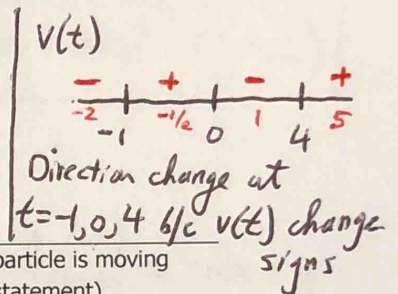 v(t)
- + - +
-2 -1 -1/2 0 1 4 5
Direction change at
t=-1,0,4 b/c v(t) change
signs
particle is moving
statement)